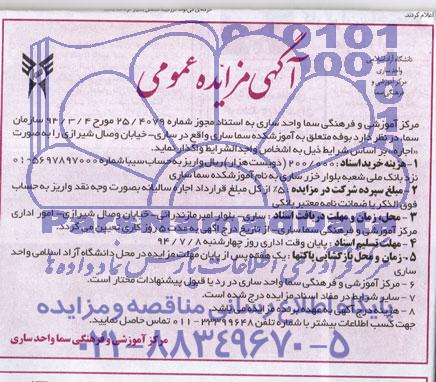 اعلام کردند
دانشگاه آزاد اسلامی
واحد ساری
مرکز آموزشی و
فرهنگی سما
آگهی مزایده عمومی
مرکز آموزشی و فرهنگی سما واحد ساری به استناد مجوز شماره ۲۵/۴۰۷۹ مورخ ۹۴/۳/۴ سازمان
سما در نظر دارد بوفه متعلق به آموزشکده سما ساری واقع در ساری- خیابان وصال شیرازی را به صورت
«اجاره» بر اساس شرایط ذیل به اشخاص واجدالشرایط واگذار نماید.
۱- هزینه خرید اسناد : ۲۰۰/۰۰۰ (دویست هزار) ریال واریز به حساب سیبا شماره
نزد بانک ملی شعبه بلوار خزر ساری به نام آموزشکده سما ساری
۲- مبلغ سپرده شرکت در مزایده : ۵٪ از کل مبلغ قرارداد اجاره سالیانه بصورت وجه نقد واریز به حساب
فوق الذکر یا ضمانت نامه معتبر بانکی
۳- محل، زمان و مهلت دریافت اسناد : ساری- بلوار امیرمازندرانی- خیابان وصال شیرازی- امور اداری
مرکز آموزشی و فرهنگی سما ساری- از تاریخ درج آگهی به مدت ۵ روز کاری تعیین می گردد.
۴- مهلت تسلیم اسناد : پایان وقت اداری روز چهارشنبه ۹۴/۷/۸
۵- زمان و محل بازگشایی پاکتها : یک هفته پس از پایان مهلت مزایده در محل دانشگاه آزاد اسلامی واحد
ساری
۶- مرکز آموزشی و فرهنگی سما واحد ساری در رد یا قبول پیشنهادات مختار است.
۷- سایر شرایط در مفاد اسناد مزایده درج شده است.
۸- هزینه درج آگهی به عهده برنده مزایده می باشد.
جهت کسب اطلاعات بیشتر با شماره تلفن ۳۳۳۹۹۶۴۸-۰۱۱ تماس حاصل نمایید.
مرکز آموزشی و فرهنگی سما واحد ساری
پایگاه اطلاع رسانی مناقصه و مزایده
۰۲۱-۸۸۳۴۹۶۷۰-۵